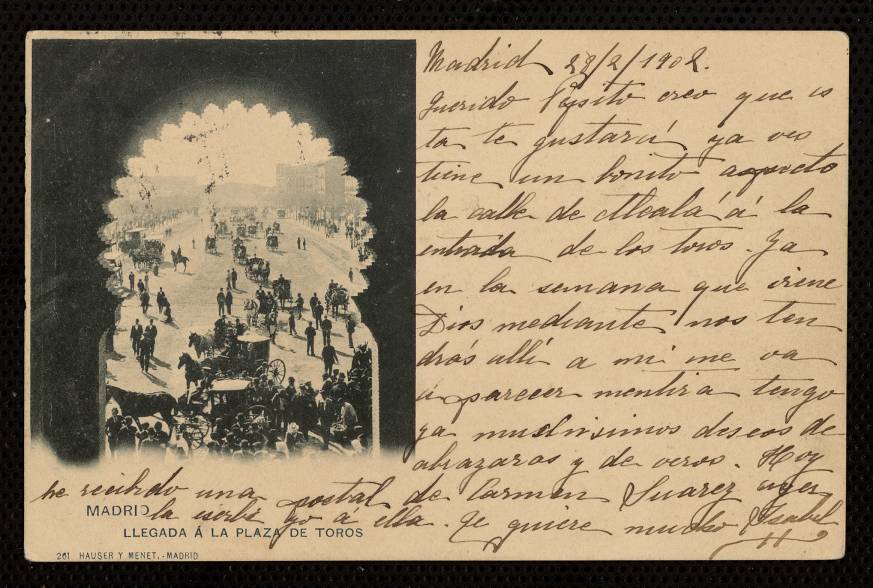 Madrid 28/2/1902.
Querido Pepito creo que es
ta te gustará, ya ves
tiene un bonito aspecto
la calle de Alcalá á la
entrada de los toros. Ya
en la semana que viene
Dios mediante nos ten
drás allí a mi me va
á parecer mentira tengo
ya muchisimos deseos de
abrazaros y de veros. Hoy
he recibido una postal de Carmen Suarez ayer
la escribí yo á ella. Te quiere mucho Isabel
MADRID
LLEGADA Á LA PLAZA DE TOROS
261 HAUSER Y MENET.-MADRID